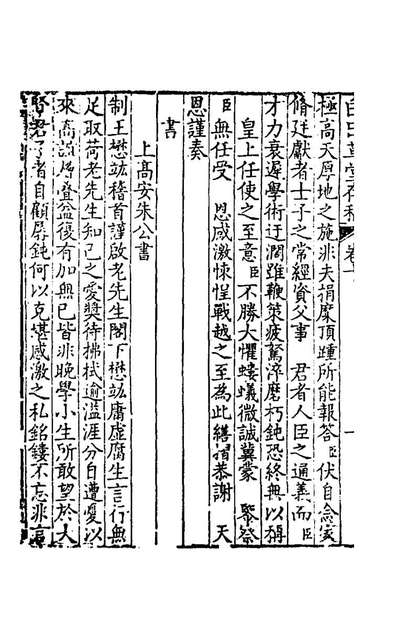 白田草堂存稿 卷
極高天厚地之施非夫捐糜頂踵所能報答臣伏自念家
脩廷獻者士子之常經資父事 君者人臣之通義而臣
才力衰遲學術迂濶雖鞭策疲駑淬磨朽鈍恐終無以稱
皇上任使之至意臣不勝大懼螻蟻微誠冀蒙 鑒察
臣無任受 恩感激悚惶戰越之至為此繕摺恭謝 天
恩謹奏
書
上高安朱公書
制王懋竑稽首謹啟老先生閣下懋竑庸虛腐生言行無
足取荷老先生知己之愛獎待拂拭逾溢涯分自遭憂以
來高誼稠疊益復有加無已皆非晚學小生所敢望於大
賢君子者自顧孱鈍何以克堪感激之私銘鏤不忘非